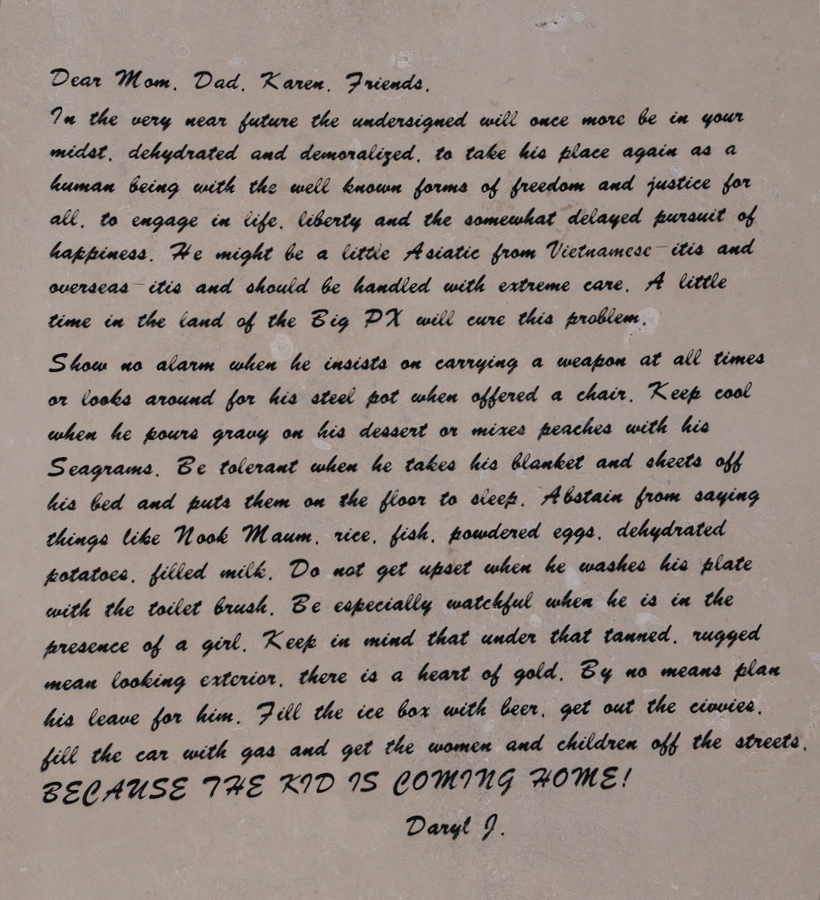 Dear Mom, Dad, Karen, Friends,
In the very near future the undersigned will once more be in your
midst, dehydrated and demoralized, to take his place again as a
human being with the well known forms of freedom and justice for
all, to engage in life, liberty and the somewhat delayed pursuit of
happiness. He might be a little Asiatic from Vietnamese-itis and
overseas-itis and should be handled with extreme care. A little
time in the land of the Big PX will cure this problem.
Show no alarm when he insists on carrying a weapon at all times
or looks around for his steel pot when offered a chair. Keep cool
when he pours gravy on his dessert or mixes peaches with his
Seagrams. Be tolerant when he takes his blanket and sheets off
his bed and puts them on the floor to sleep. Abstain from saying
things like Nook Maum, rice, fish, powdered eggs, dehydrated
potatoes, filled milk. Do not get upset when he washes his plate
with the toilet brush. Be especially watchful when he is in the
presence of a girl. Keep in mind that under that tanned, rugged
mean looking exterior, there is a heart of gold. By no means plan
his leave for him. Fill the ice box with beer, get out the civvies,
fill the car with gas and get the women and children off the streets,
BECAUSE THE KID IS COMING HOME!
Daryl J.